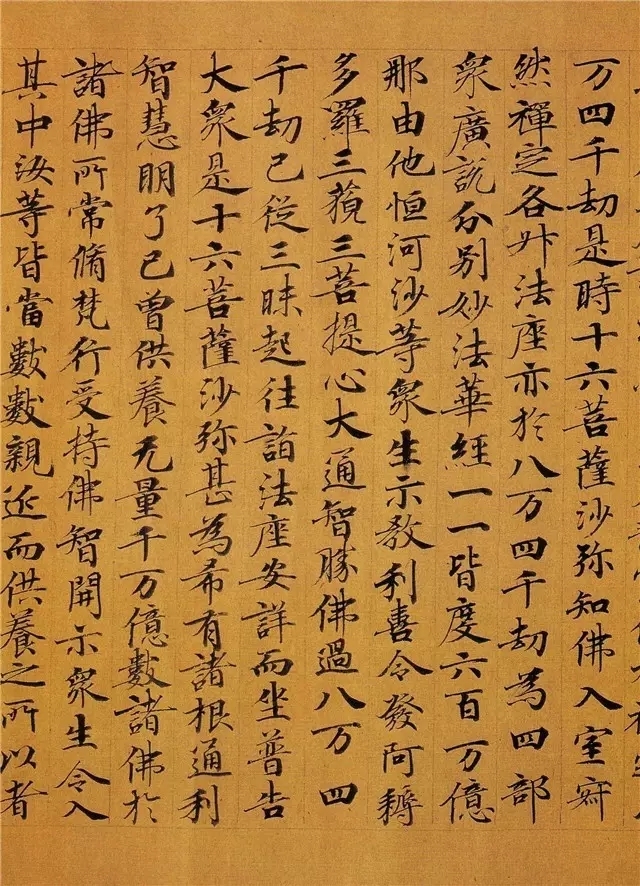 万四千劫是時十六菩薩沙弥知佛入室寂
然禪定各昇法座亦於八万四千劫為四部
衆廣說分别妙法華經一一皆度六百万億
那由他恒河沙等衆生示教利喜令發阿耨
多羅三藐三菩提心大通智勝佛過八万四
千劫已從三昧起往詣法座安詳而坐普告
大衆是十六菩薩沙弥甚為希有諸根通利
智慧明了已曾供養无量千万億數諸佛於
諸佛所常脩梵行受持佛智開示衆生令入
其中汝等皆當數數親近而供養之所以者